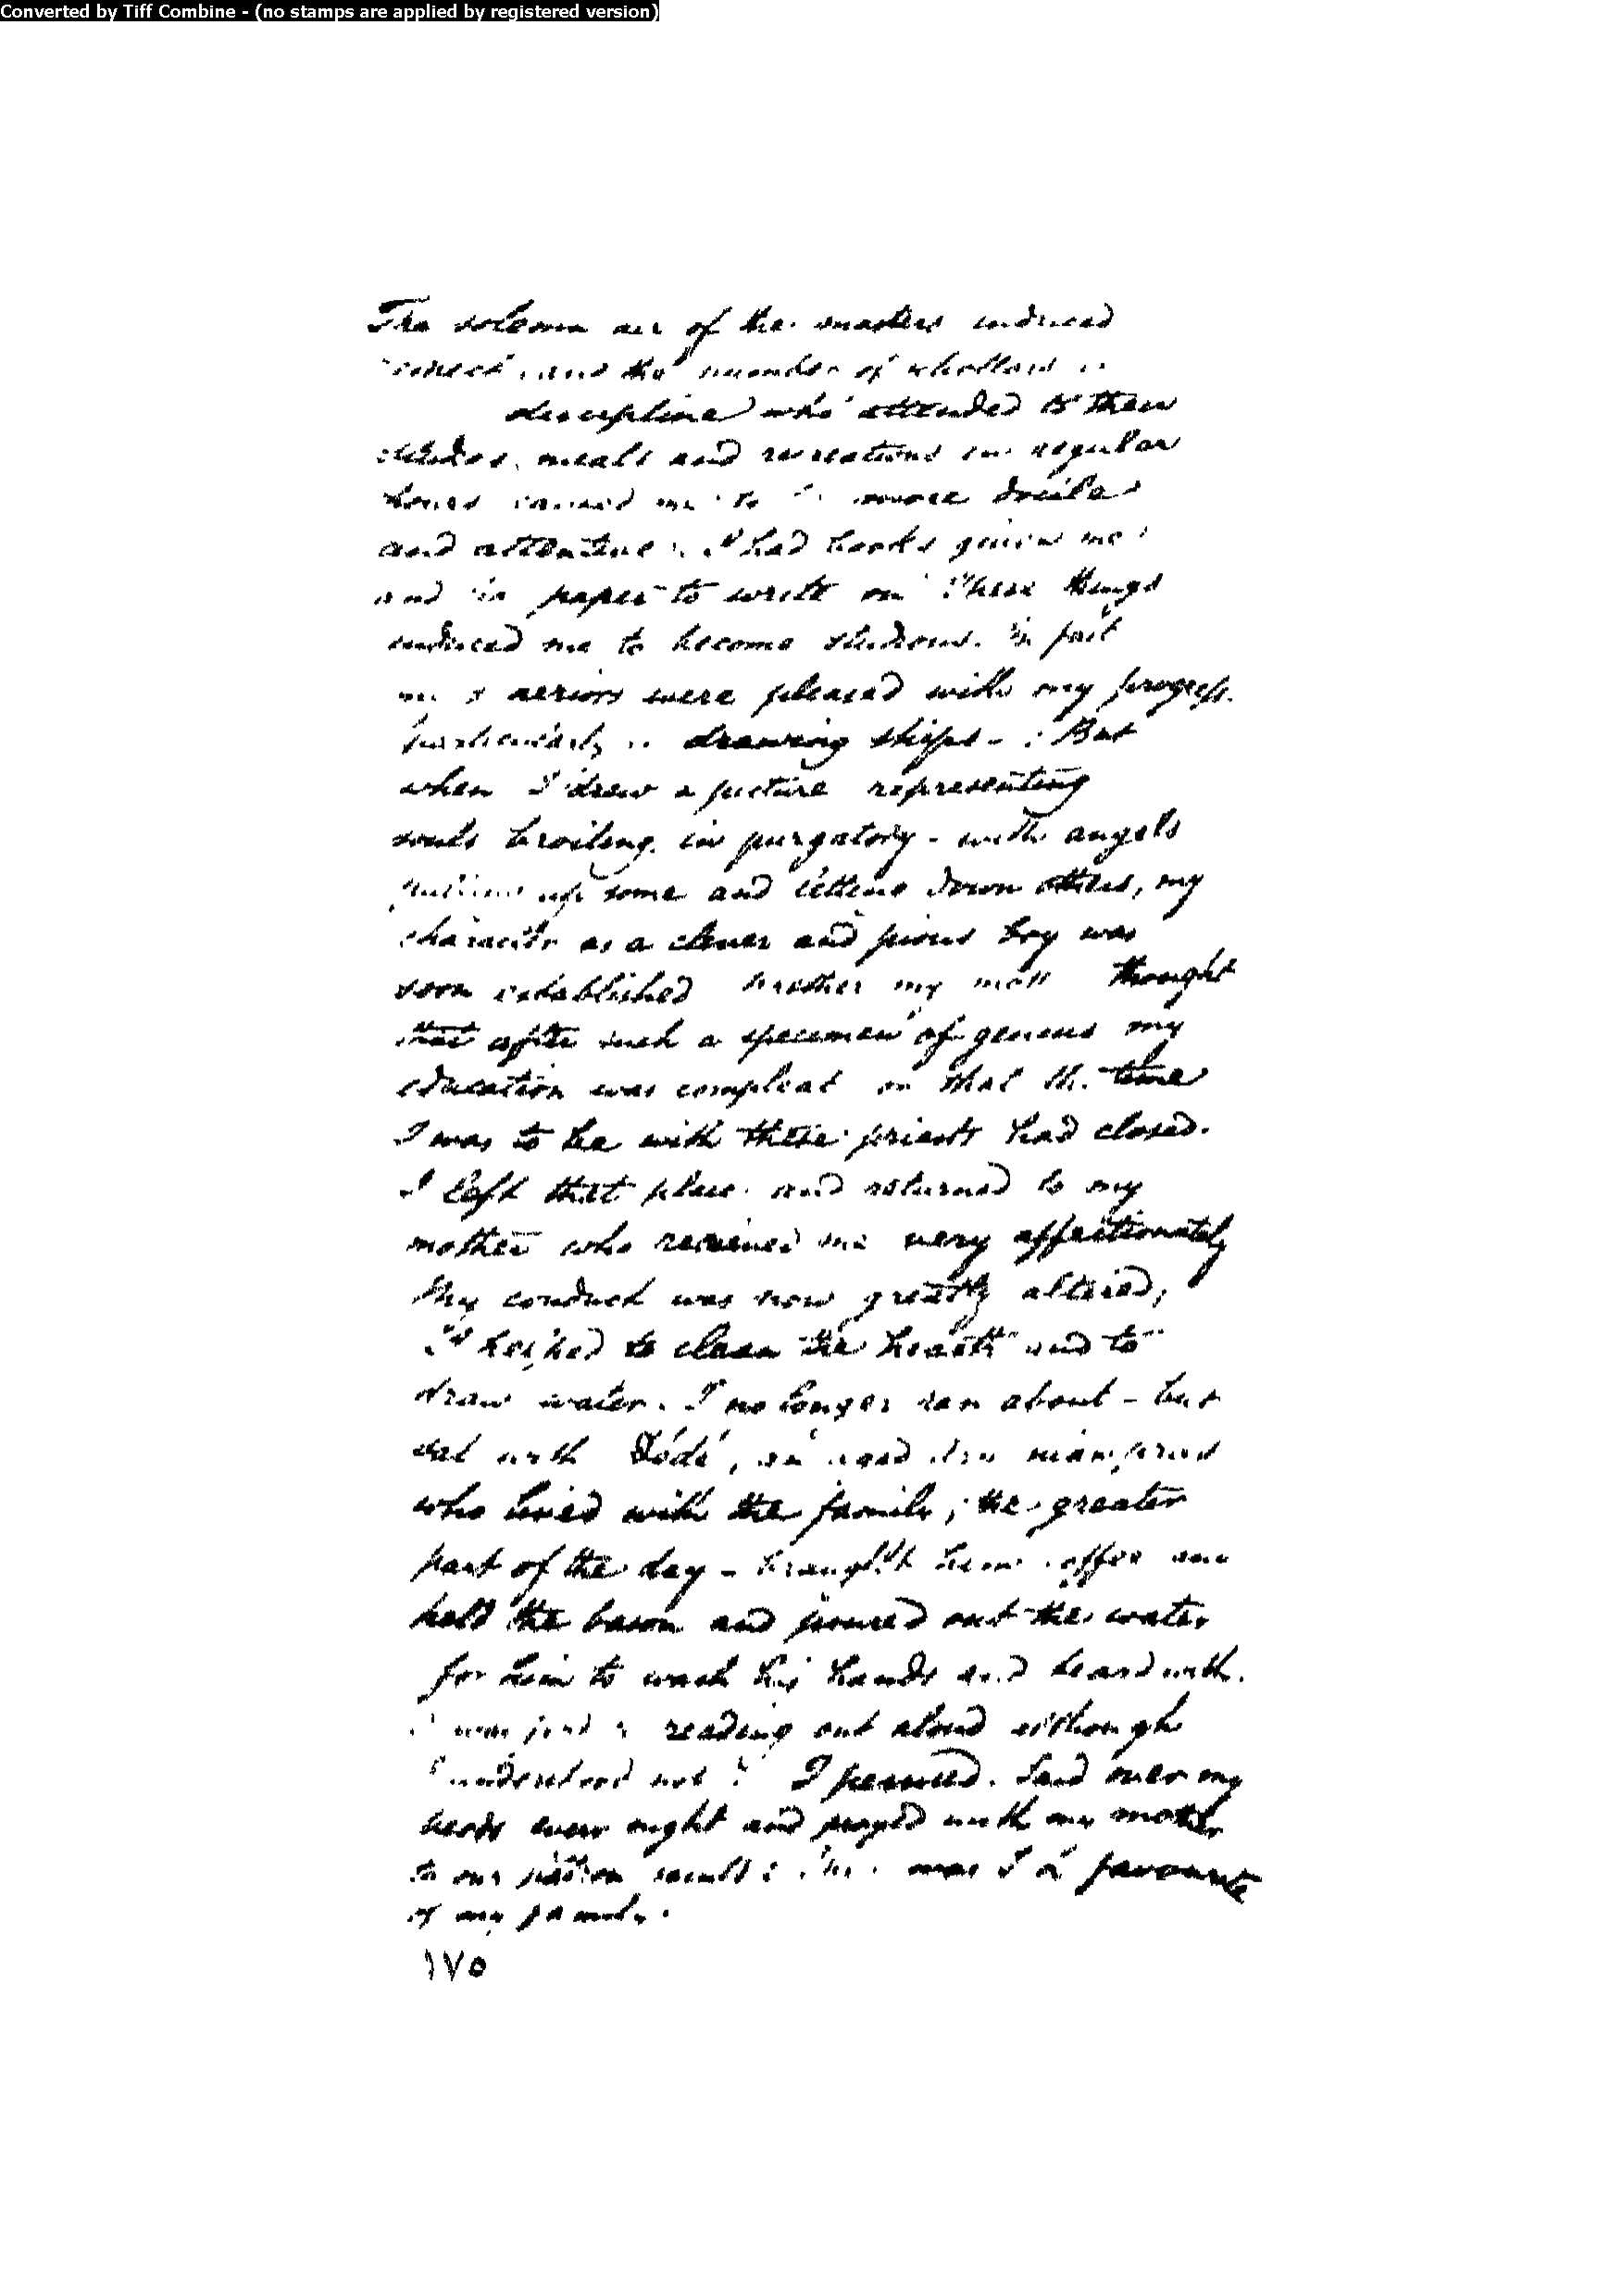 Converted by Tiff Combine - (no stamps are applied by registered version)
The solemn air of the masters induced
and the number of
discipline who attended to their
studies, meals and recreations in regular
hours caused me to more docile
and attentive. I had books given me
and paper to write on These things
induced me to become studious. in fact
were pleased with my progress.
particularly drawing ships - : But
when I drew a picture representing
souls broiling in purgatory - with angels
up some and letting down others, my
character as a clever and pious boy was
soon established my thought
that after such a specimen of genius my
education was compleat on that the time
I was to be with these priests had closed.
I left that place and returned to my
mother who received me very affectionately
My conduct was now greatly altered,
I helped to clean the hearth and to
draw water. I no longer ran about - but
sat with
who lived with the family, the greater
part of the day - brought him coffee and
held the bason and poured out the water
for him to wash his hands and beard with.
reading out aloud although
I understood not I said over my
beads every night and prayed with my mother
to our patron saints: was I a favourite
of my family.
١٧٥